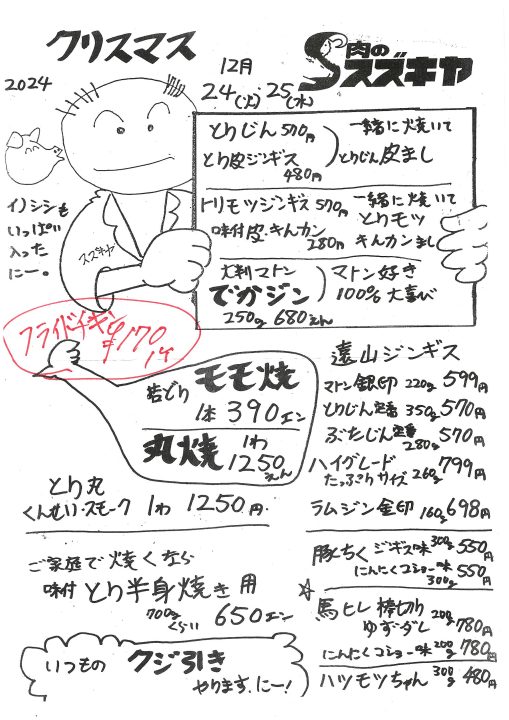 クリスマス
2024
12月
24(火)・25(水)
肉の
スズキヤ
とりじん 570円
とり皮ジンギス
480円
一緒に焼いて
とりじん皮まし
トリモツジンギス 570円
味付皮・きんカン
280円
一緒に焼いて
とりモツ
きんカンまし
大判マトン
でかジン
250g 680えん
マトン好き
100%大喜び
イノシシも
いっぱい
入った
にー。
スズキヤ
フライドチキン
¥170
1ケ
若どり モモ焼
1本 390エン
丸焼 1わ
1250えん
とり丸
くんせい・スモーク 1わ 1250円.
ご家庭で焼くなら
味付 とり半身焼き用
700g
くらい 650エン
いつもの クジ引き
やります.にー!
遠山ジンギス
マトン銀印 220g 599円
とりじん定番 350g 570円
ぶたじん定番 280g 570円
ハイグレード
たっぷりサイズ 260g 799円
ラムジン金印 160g 698円
豚とく ジンギス味 300g 550円
にんにくコショー味 300g 550円
☆
馬ヒレ 棒切り 200g
ゆず・ダレ 780円
にんにくコショー味 200g 780円
ハツモツちゃん 300g 480円